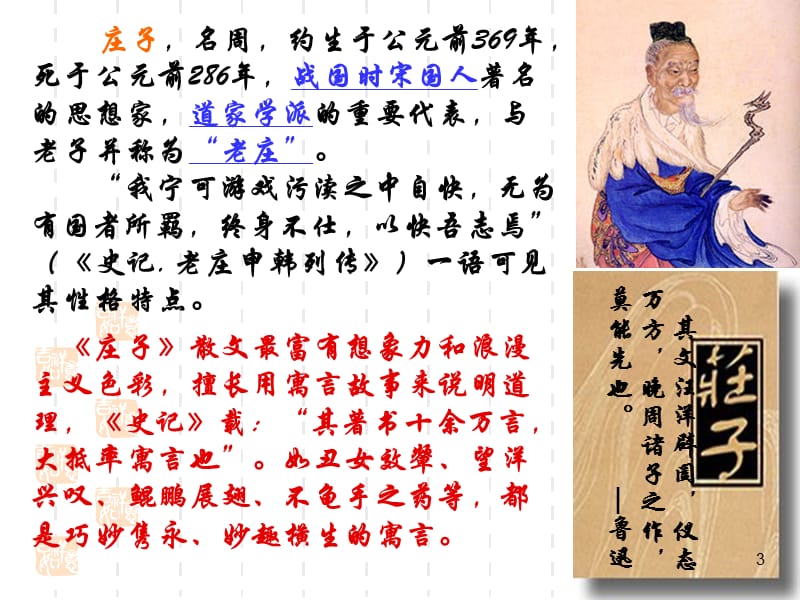 庄子，名周，约生于公元前369年，
死于公元前286年，战国时宋国人著名
的思想家，道家学派的重要代表，与
老子并称为“老庄”。
“我宁可游戏污渎之中自快，无为
有国者所羁，终身不仕，以快吾志焉”
（《史记.老庄申韩列传》）一语可见
其性格特点。
《庄子》散文最富有想象力和浪漫
主义色彩，擅长用寓言故事来说明道
理，《史记》载：“其著书十余万言，
大抵率寓言也”。如丑女效颦、望洋
兴叹、鲲鹏展翅、不龟手之药等，都
是巧妙隽永、妙趣横生的寓言。
其文汪洋辟阖，仪态
万方，晚周诸子之作，
莫能先也。
—鲁迅
莊子
3